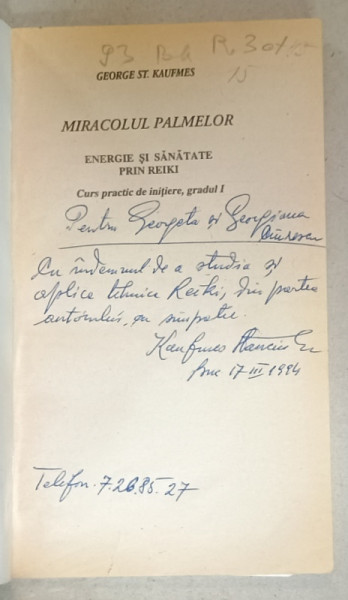 GEORGE ST. KAUFMES
MIRACOLUL PALMELOR
ENERGIE ȘI SĂNĂTATE
PRIN REIKI
Curs practic de inițiere, gradul I
Pentru Georgeta și Georgiana
Cu îndemnul de a studia și
aplica tehnica Reiki, din partea
autorului, cu simpatie.
Kaufmes
Buc 17 III 1994
Telefon. 7.26.85.27